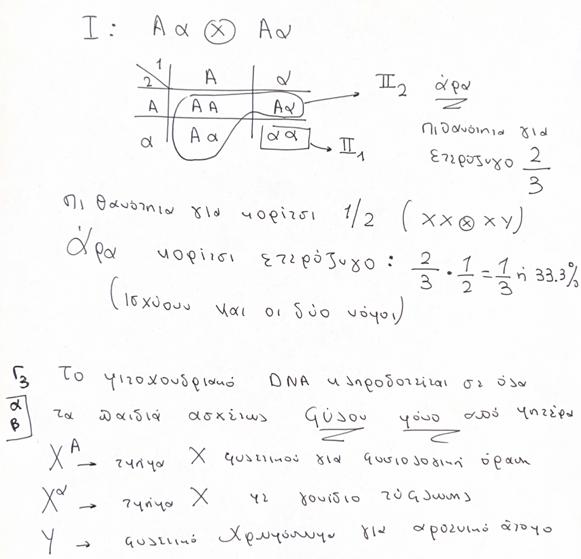 I : Aα ⊗ Aα
1 A α
2
A AA Aα → II2 άρα
α Αα αα → II1
πιθανότητα για
ετερόζυγο 2/3
πιθανότητα για κορίτσι 1/2 (XX ⊗ XY)
Άρα κορίτσι ετερόζυγο : 2/3 · 1/2 = 1/3 ή 33.3%
(Ισχύουν και οι δύο νόμοι)
Γ3 Το μιτοχονδριακό DNA κληροδοτείται σε όλα
α τα παιδιά ασχέτως φύλου μόνο από μητέρα
β
X^A → τμήμα X φυλετικού για φυσιολογική όραση
X^α → τμήμα X με γονίδιο τύφλωσης
Y → φυλετικό χρωμόσωμα για αρσενικό άτομο